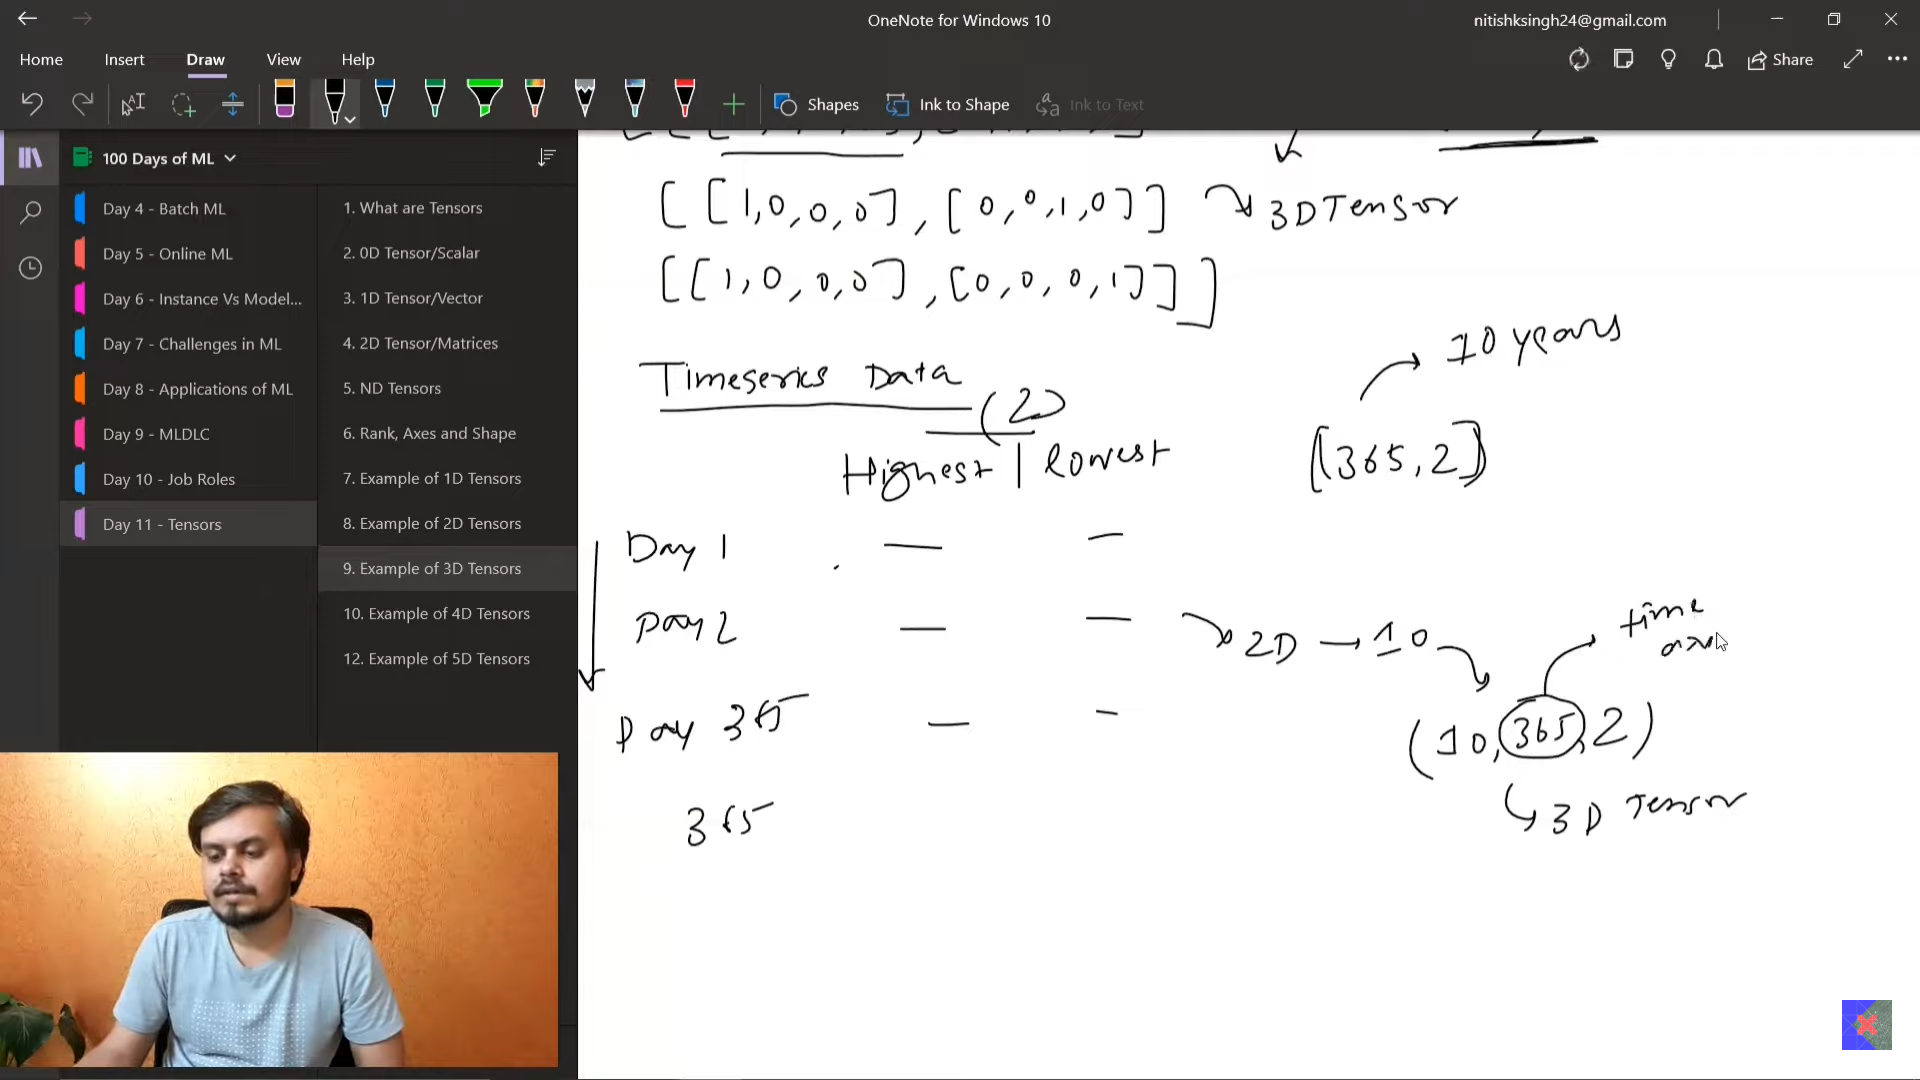 OneNote for Windows 10
nitishksingh24@gmail.com
Home Insert Draw View Help
Share
Shapes Ink to Shape Ink to Text
100 Days of ML
Day 4 - Batch ML
Day 5 - Online ML
Day 6 - Instance Vs Model...
Day 7 - Challenges in ML
Day 8 - Applications of ML
Day 9 - MLDLC
Day 10 - Job Roles
Day 11 - Tensors
1. What are Tensors
2. 0D Tensor/Scalar
3. 1D Tensor/Vector
4. 2D Tensor/Matrices
5. ND Tensors
6. Rank, Axes and Shape
7. Example of 1D Tensors
8. Example of 2D Tensors
9. Example of 3D Tensors
10. Example of 4D Tensors
12. Example of 5D Tensors
[[1,0,0,0],[0,0,1,0]] 3D Tensor
[[1,0,0,0],[0,0,0,1]]]
10 years
Timeseries Data
(2)
Highest | lowest
[(365,2)]
Day 1 — —
Day 2 — — 2D → 10
time
Day 365 — —
(10,365,2)
3D Tensor
365